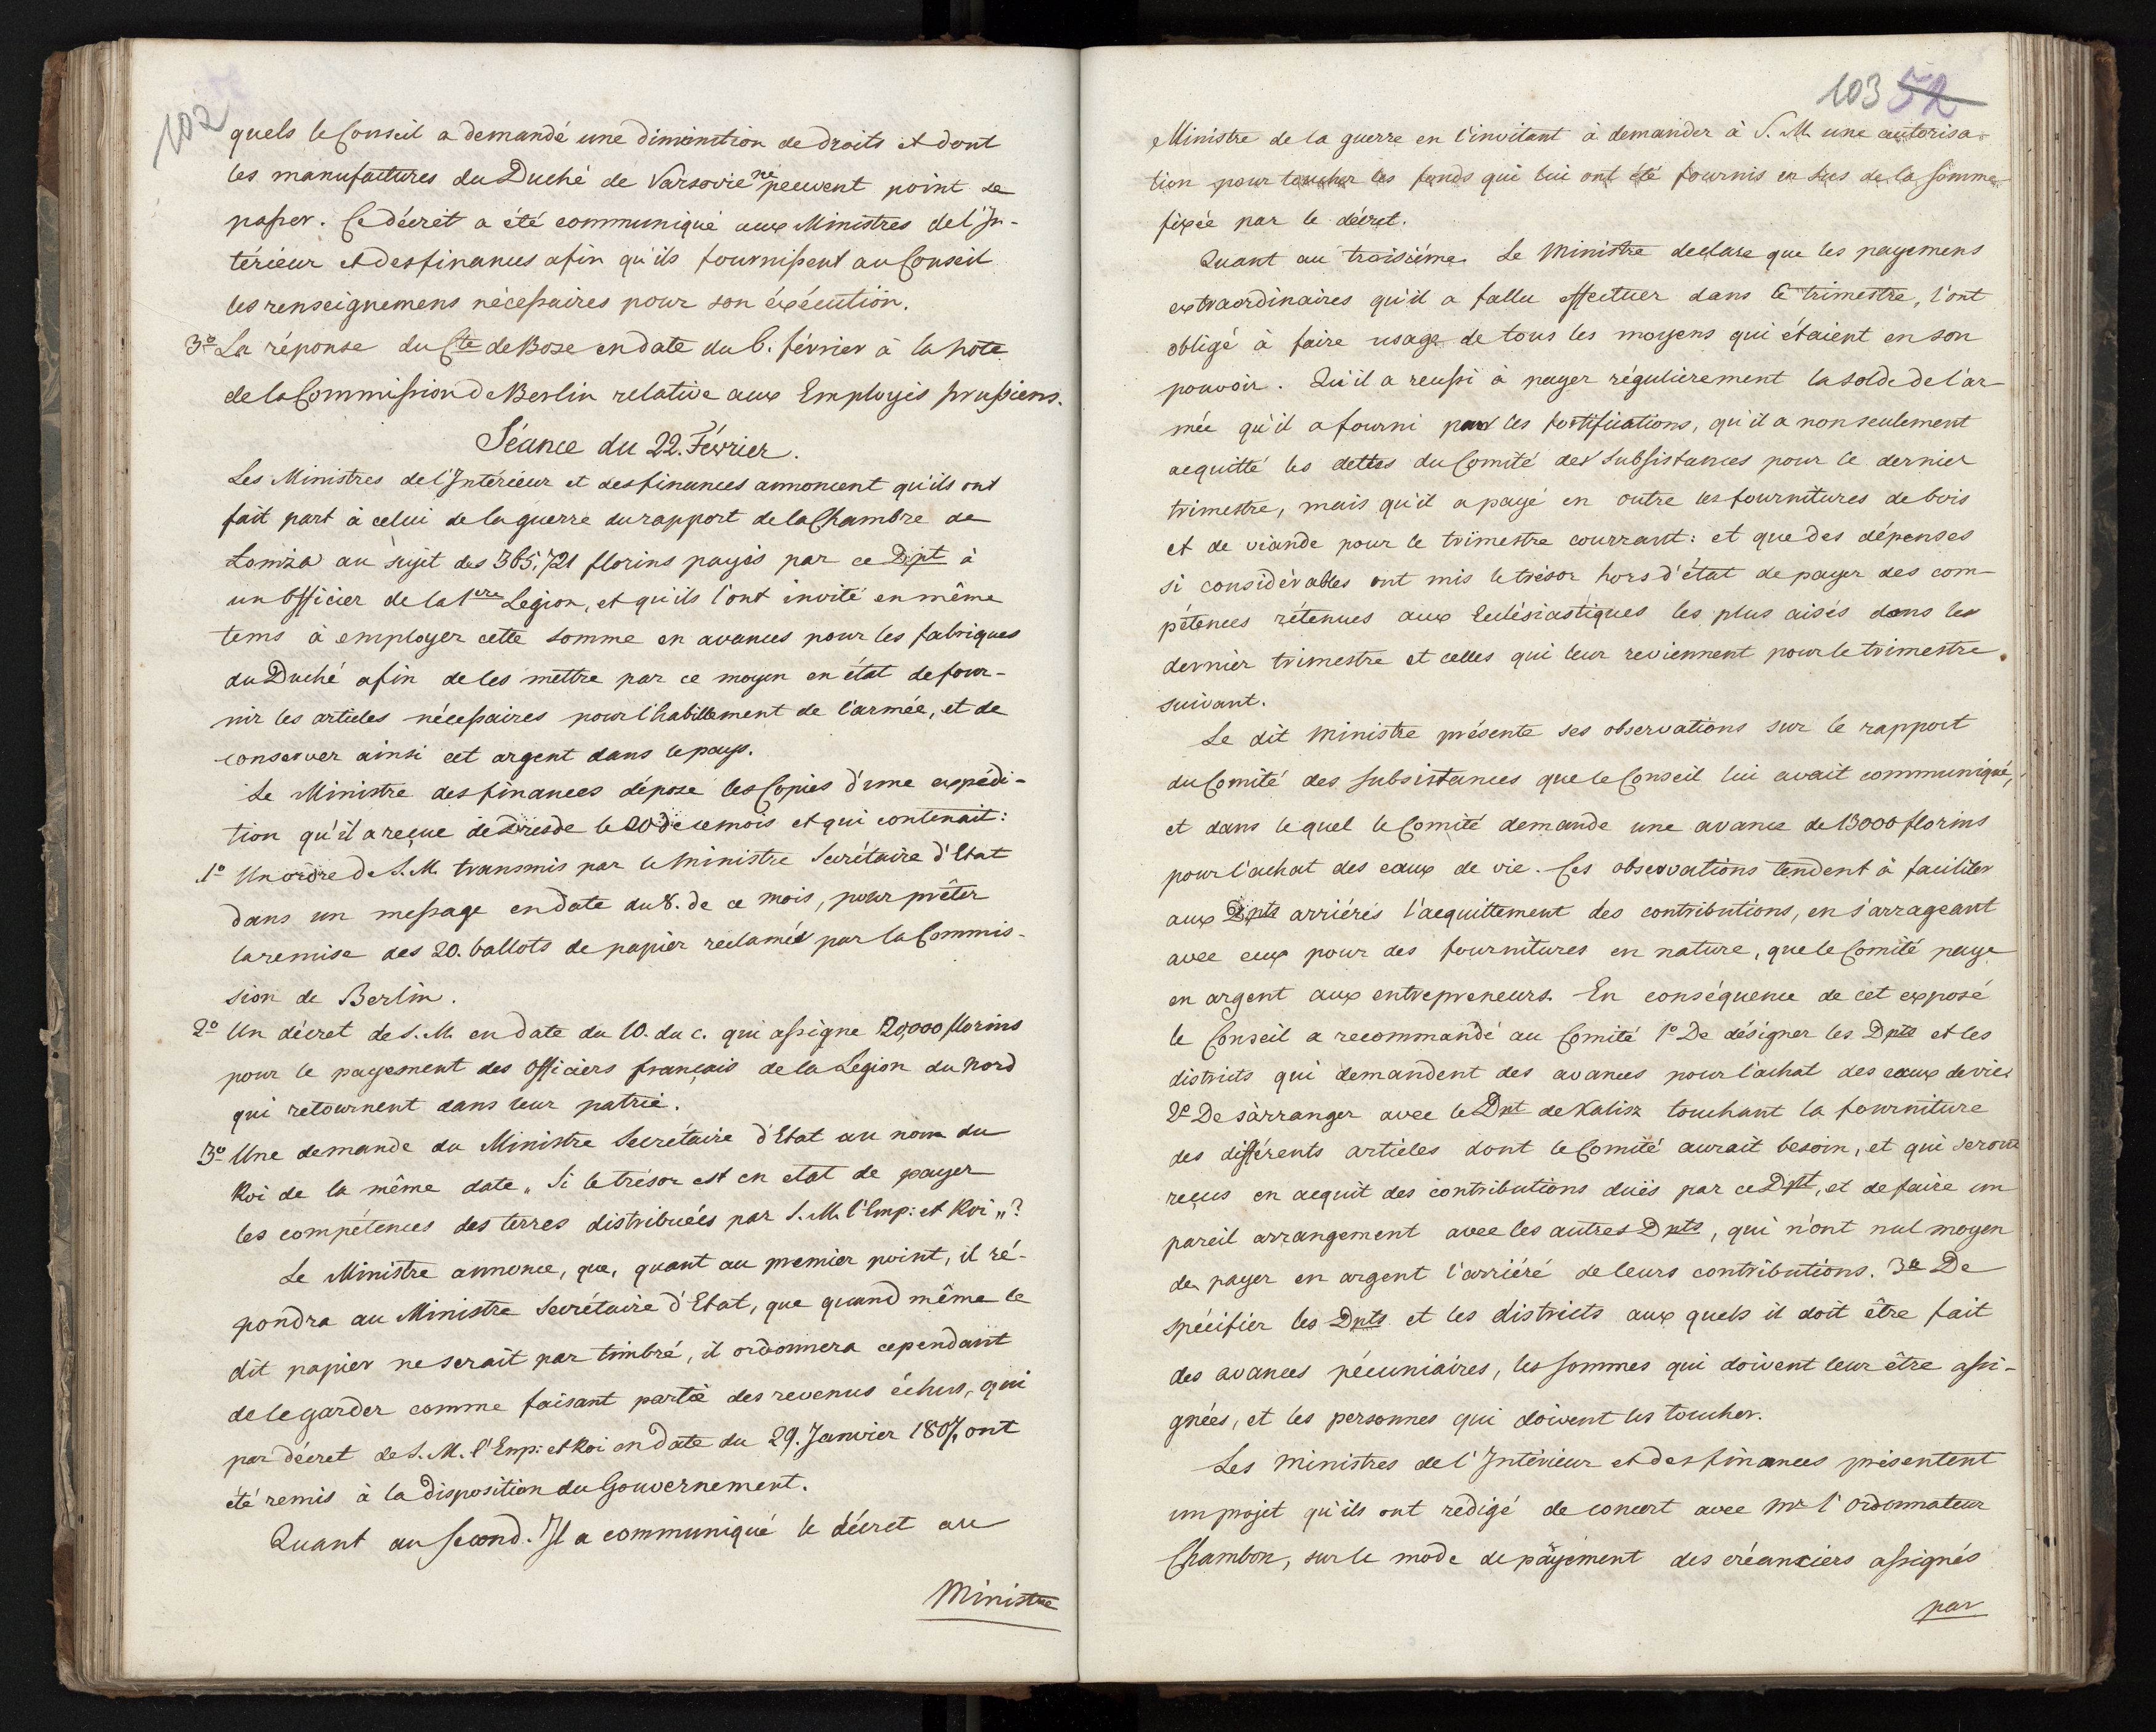 102
quels le Conseil a demandé une diminution de droits et dont
les manufactures du Duché de Varsovie ne peuvent point se
passer. Ce décret a été communiqué aux Ministres de l'In-
térieur et des finances afin qu'ils fournissent au Conseil
les renseignemens nécessaires pour son éxécution.
3o La réponse du Cte de Bose en date du 6. février à la note
de la Commission de Berlin relative aux Employés prussiens.
Séance du 22. Février.
Les Ministres de l'Intérieur et des finances annoncent qu'ils ont
fait part à celui de la guerre du rapport de la Chambre de
Lomza au sujet des 365,721 florins payés par ce Dpt à
un Officier de la 1ere Legion, et qu'ils l'ont invité en même
tems à employer cette somme en avances pour les fabriques
du Duché afin de les mettre par ce moyen en état de four-
nir les articles nécessaires pour l'habillement de l'armée, et de
conserver ainsi cet argent dans le pays.
Le Ministre des finances dépose les Copies d'une expédi-
tion qu'il a reçue de Dresde le 20 de ce mois et qui contenait:
1o Un ordre de S. M. transmis par le Ministre Secrétaire d'Etat
dans un message en date du 8. de ce mois, pour prêter
la remise des 20. ballots de papier reclamés par la Commis-
sion de Berlin.
2o Un décret de S. M. en date du 10. du c. qui assigne 20,000 florins
pour le payement des Officiers français de la Légion du Nord
qui retournent dans leur patrie.
3o Une demande du Ministre Secrétaire d'Etat au nom du
Roi de la même date „ Si le trésor est en etat de payer
les compétences des terres distribuées par S. M. l'Emp: et Roi „?
Le Ministre annonce, que, quant au premier point, il ré-
pondra au Ministre Secrétaire d'Etat, que quand même le
dit papier ne serait par timbré, il ordonnera cependant
de le garder comme faisant partie des revenus échus, qui
par décret de S. M. l'Emp: et Roi en date du 29. Janvier 1807, ont
été remis à la disposition du Gouvernement.
Quant au second. Il a communiqué le décret au
Ministre
103 52
Ministre de la guerre en l'invitant à demander à S. M. une autorisa-
tion pour toucher les fonds qui lui ont été fournis en sus de la somme
fixée par le décret.
Quant au troisiéme. Le Ministre declare que les payemens
extraordinaires qu'il a fallu effectuer dans ce trimestre, l'ont
obligé à faire usage de tous les moyens qui étaient en son
pouvoir. Qu'il a reussi à payer régulièrement la solde de l'ar-
mée qu'il a fourni pour les fortifications, qu'il a non seulement
acquitté les dettes du Comité des subsistances pour le dernier
trimestre, mais qu'il a payé en outre les fournitures de bois
et de viande pour le trimestre courrant: et que des dépenses
si considérables ont mis le trésor hors d'état de payer des com-
pétences rétenues aux Ecclésiastiques les plus aisés dans le
dernier trimestre et celles qui leur reviennent pour le trimestre
suivant.
Le dit Ministre présente ses observations sur le rapport
du Comité des subsistances que le Conseil lui avait communiqué,
et dans lequel le Comité demande une avance de 13000 florins
pour l'achat des eaux de vie. Ces observations tendent à faciliter
aux Dpts arriérés l'acquittement des contributions, en s'arrageant
avec eux pour des fournitures en nature, que le Comité paye
en argent aux entrepreneurs. En conséquence de cet exposé
le Conseil a recommandé au Comité 1o De désigner les Dpts et les
districts qui demandent des avances pour l'achat des eaux de vie.
2o De s'arranger avec le Dpt de Kalisz touchant la fourniture
des différents articles dont le Comité aurait besoin, et qui seront
reçus en acquit des contributions duës par ce Dpt, et de faire un
pareil arrangement avec les autres Dpts, qui n'ont nul moyen
de payer en argent l'arriéré de leurs contributions. 3o De
spécifier les Dpts et les districts aux quels il doit être fait
des avances pécuniaires, les sommes qui doivent leur être assi-
gnées, et les personnes qui doivent les toucher.
Les Ministres de l'Intérieur et des finances présentent
un projet qu'ils ont redigé de concert avec Mr l'Ordonnateur
Chambon, sur le mode de payement des créanciers assignés
par